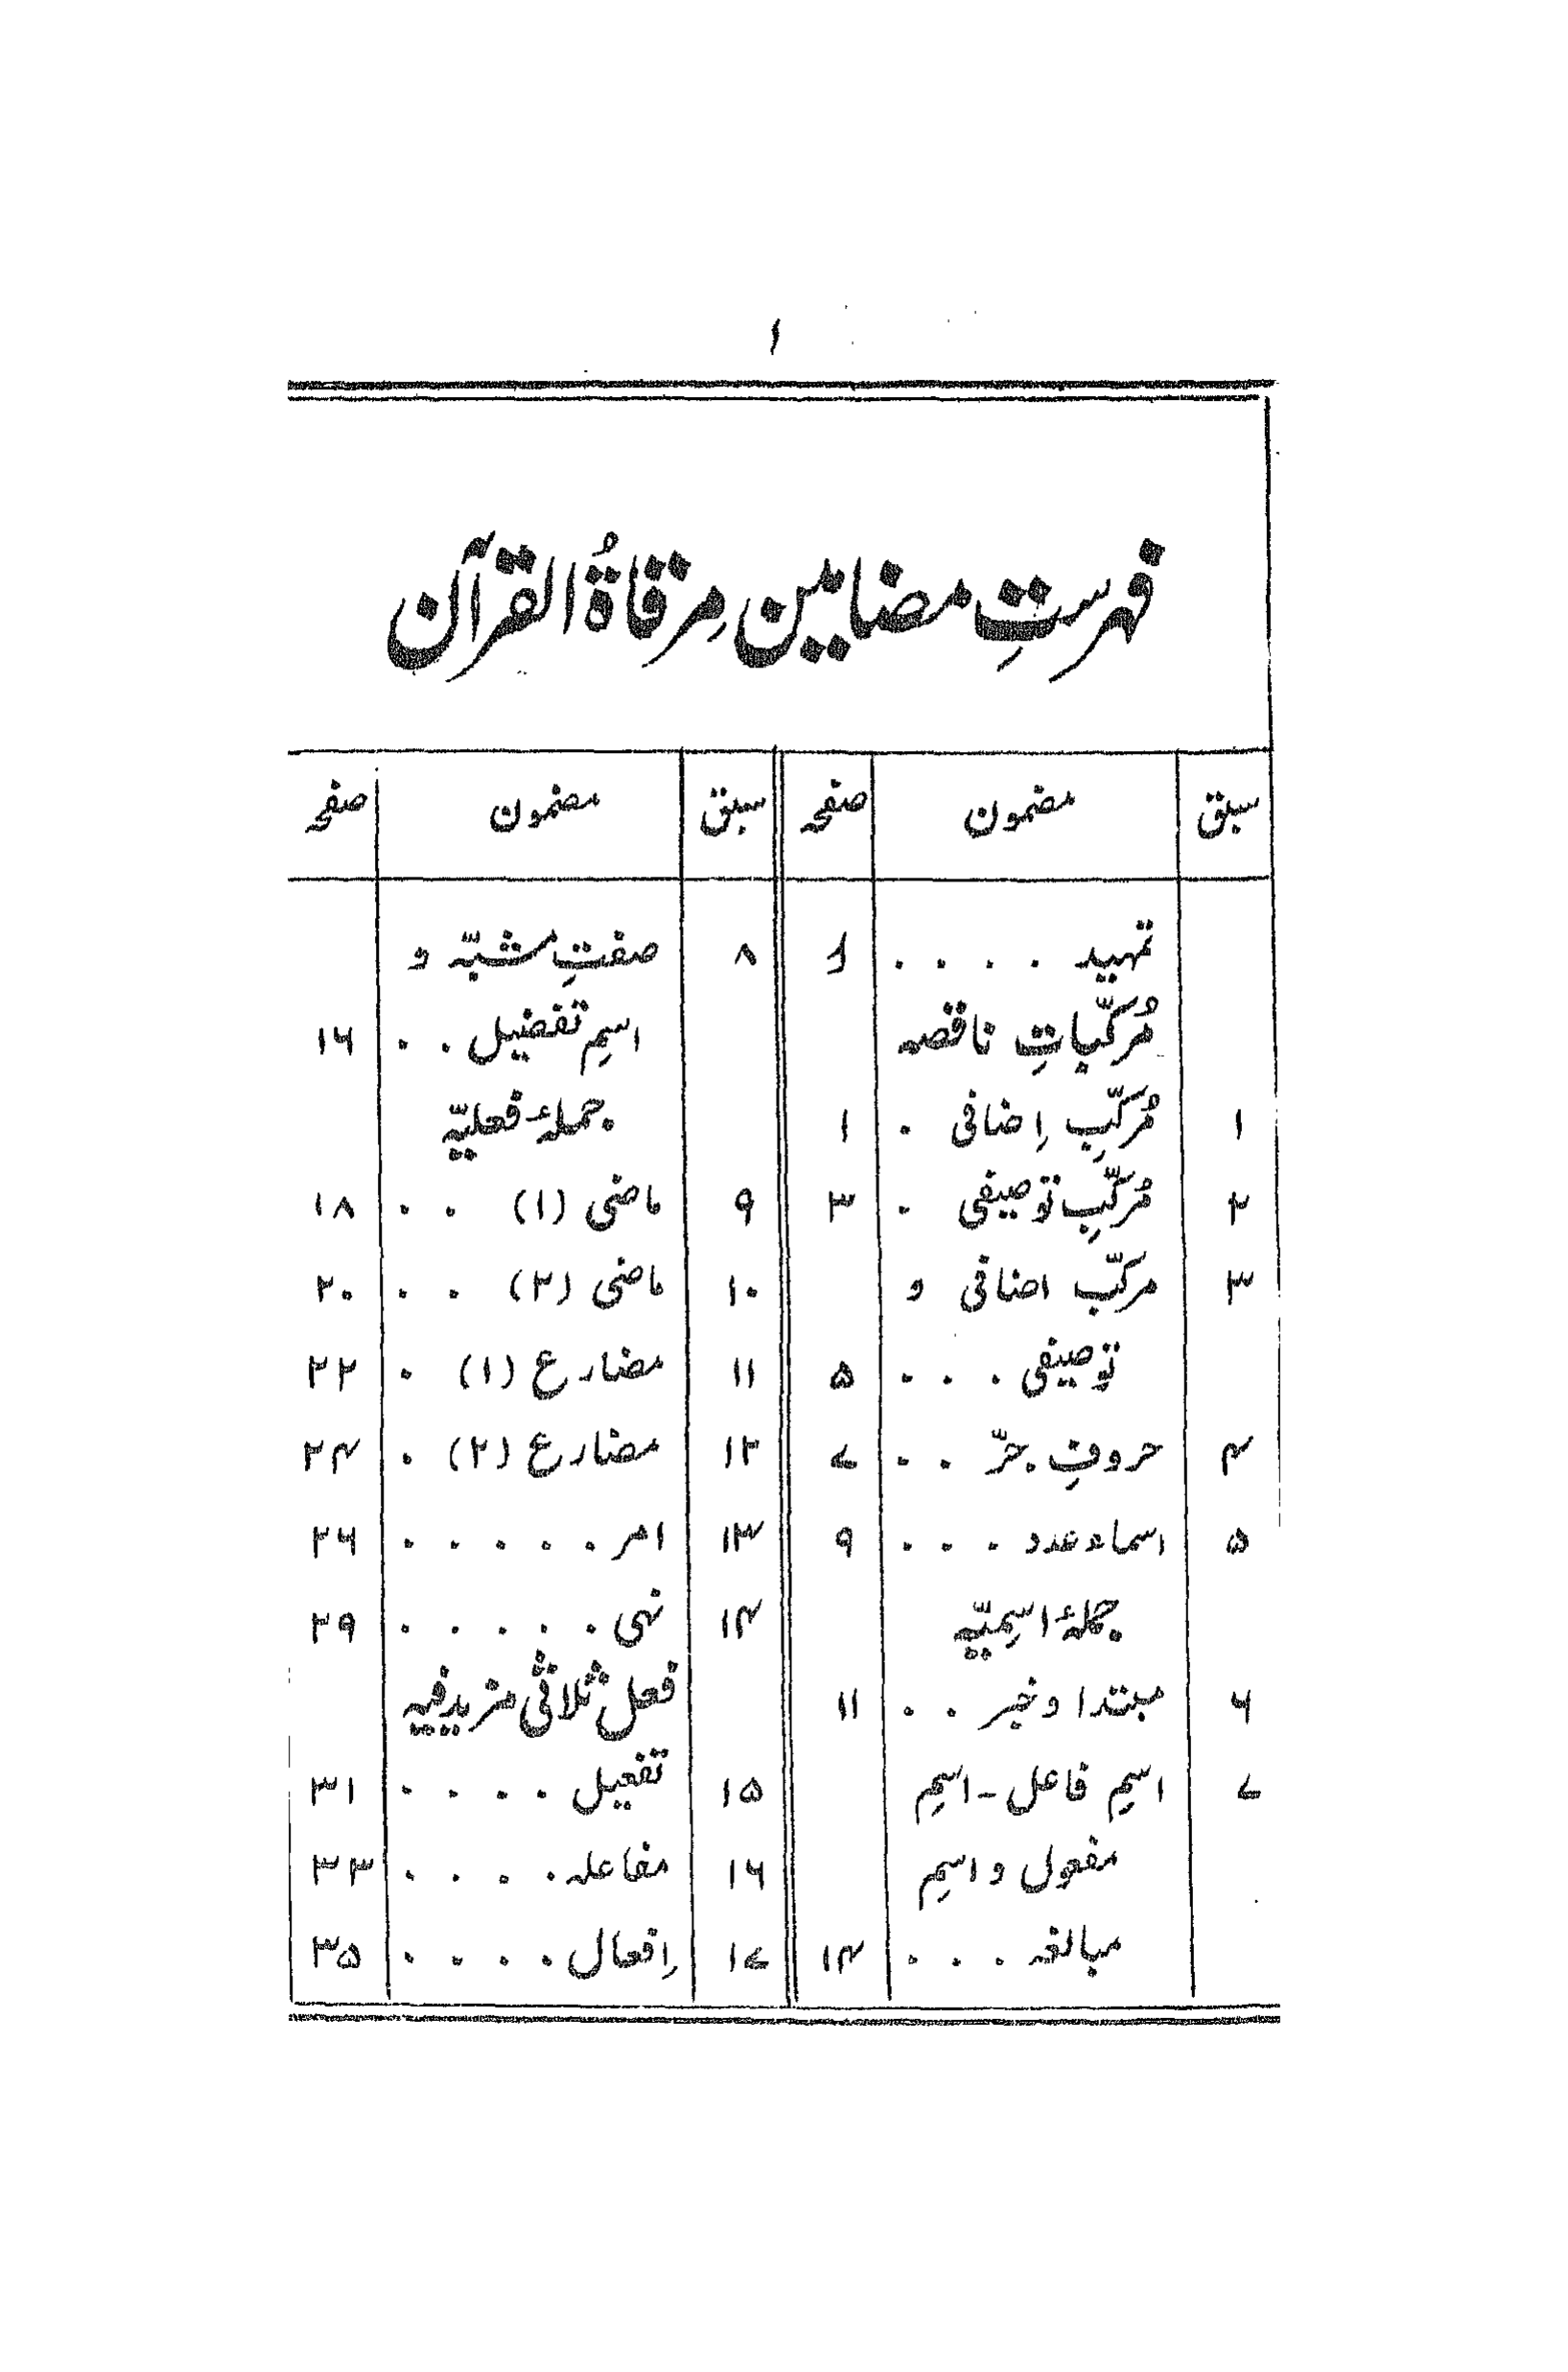 ۱
فہرستِ مضامین مِرقاۃُ القرآن
سبق مضمون صفحہ
تمہید . . . . أ
مُرکّباتِ ناقصہ
۱ مُرکّبِ اِضافی . ۱
۲ مُرکّبِ توصیفی . ۳
۳ مرکّب اضافی و
توصیفی . . . ۵
۴ حروفِ جرّ . . ۷
۵ اسماء عدد . . . ۹
جملۂ اسمِیّہ
۶ مبتدا و خبر . . ۱۱
۷ اسمِ فاعل - اسمِ
مفعول و اسمِ
مبالغہ . . . ۱۴
سبق مضمون صفحہ
۸ صفتِ مشبّہ و
اسمِ تفضیل . . ۱۶
جملۂ فعلیّہ
۹ ماضی (۱) . . ۱۸
۱۰ ماضی (۲) . . ۲۰
۱۱ مضارع (۱) . ۲۲
۱۲ مضارع (۲) . ۲۴
۱۳ امر . . . . . ۲۶
۱۴ نہی . . . . . ۲۹
فعل ثلاثی مزید فیہ
۱۵ تفعیل . . . . ۳۱
۱۶ مفاعلہ . . . . ۳۳
۱۷ اِفعال . . . . ۳۵